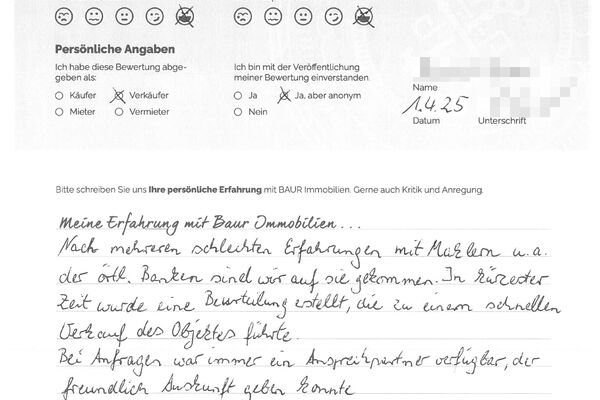 Persönliche Angaben
Ich habe diese Bewertung abge-
geben als:
Käufer Verkäufer
Mieter Vermieter
Ich bin mit der Veröffentlichung
meiner Bewertung einverstanden.
Ja Ja, aber anonym
Nein
Name
1.4.25
Datum Unterschrift
Bitte schreiben Sie uns Ihre persönliche Erfahrung mit BAUR Immobilien. Gerne auch Kritik und Anregung.
Meine Erfahrung mit Baur Immobilien...
Nach mehreren schlechten Erfahrungen mit Maklern u.a.
der örtl. Banken sind wir auf sie gekommen. In kürzester
Zeit wurde eine Beurteilung erstellt, die zu einem schnellen
Verkauf des Objektes führte.
Bei Anfragen war immer ein Ansprechpartner verfügbar, der
freundlich Auskunft geben konnte